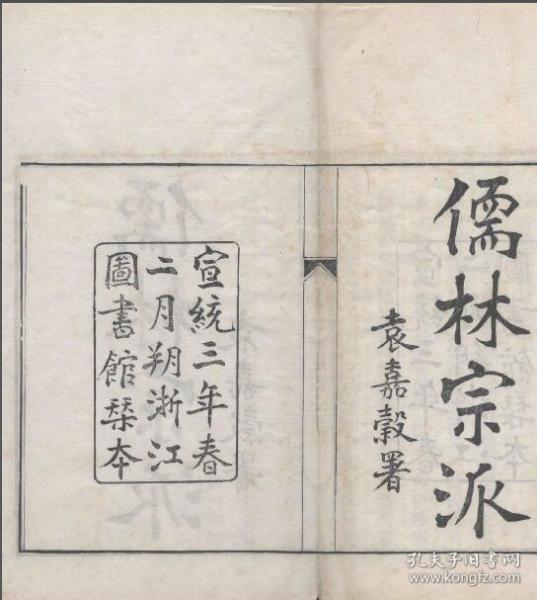 儒林宗派
袁嘉穀署
宣統三年春
二月朔浙江
圖書館栞本
孔夫子旧书网
www.kongfz.com